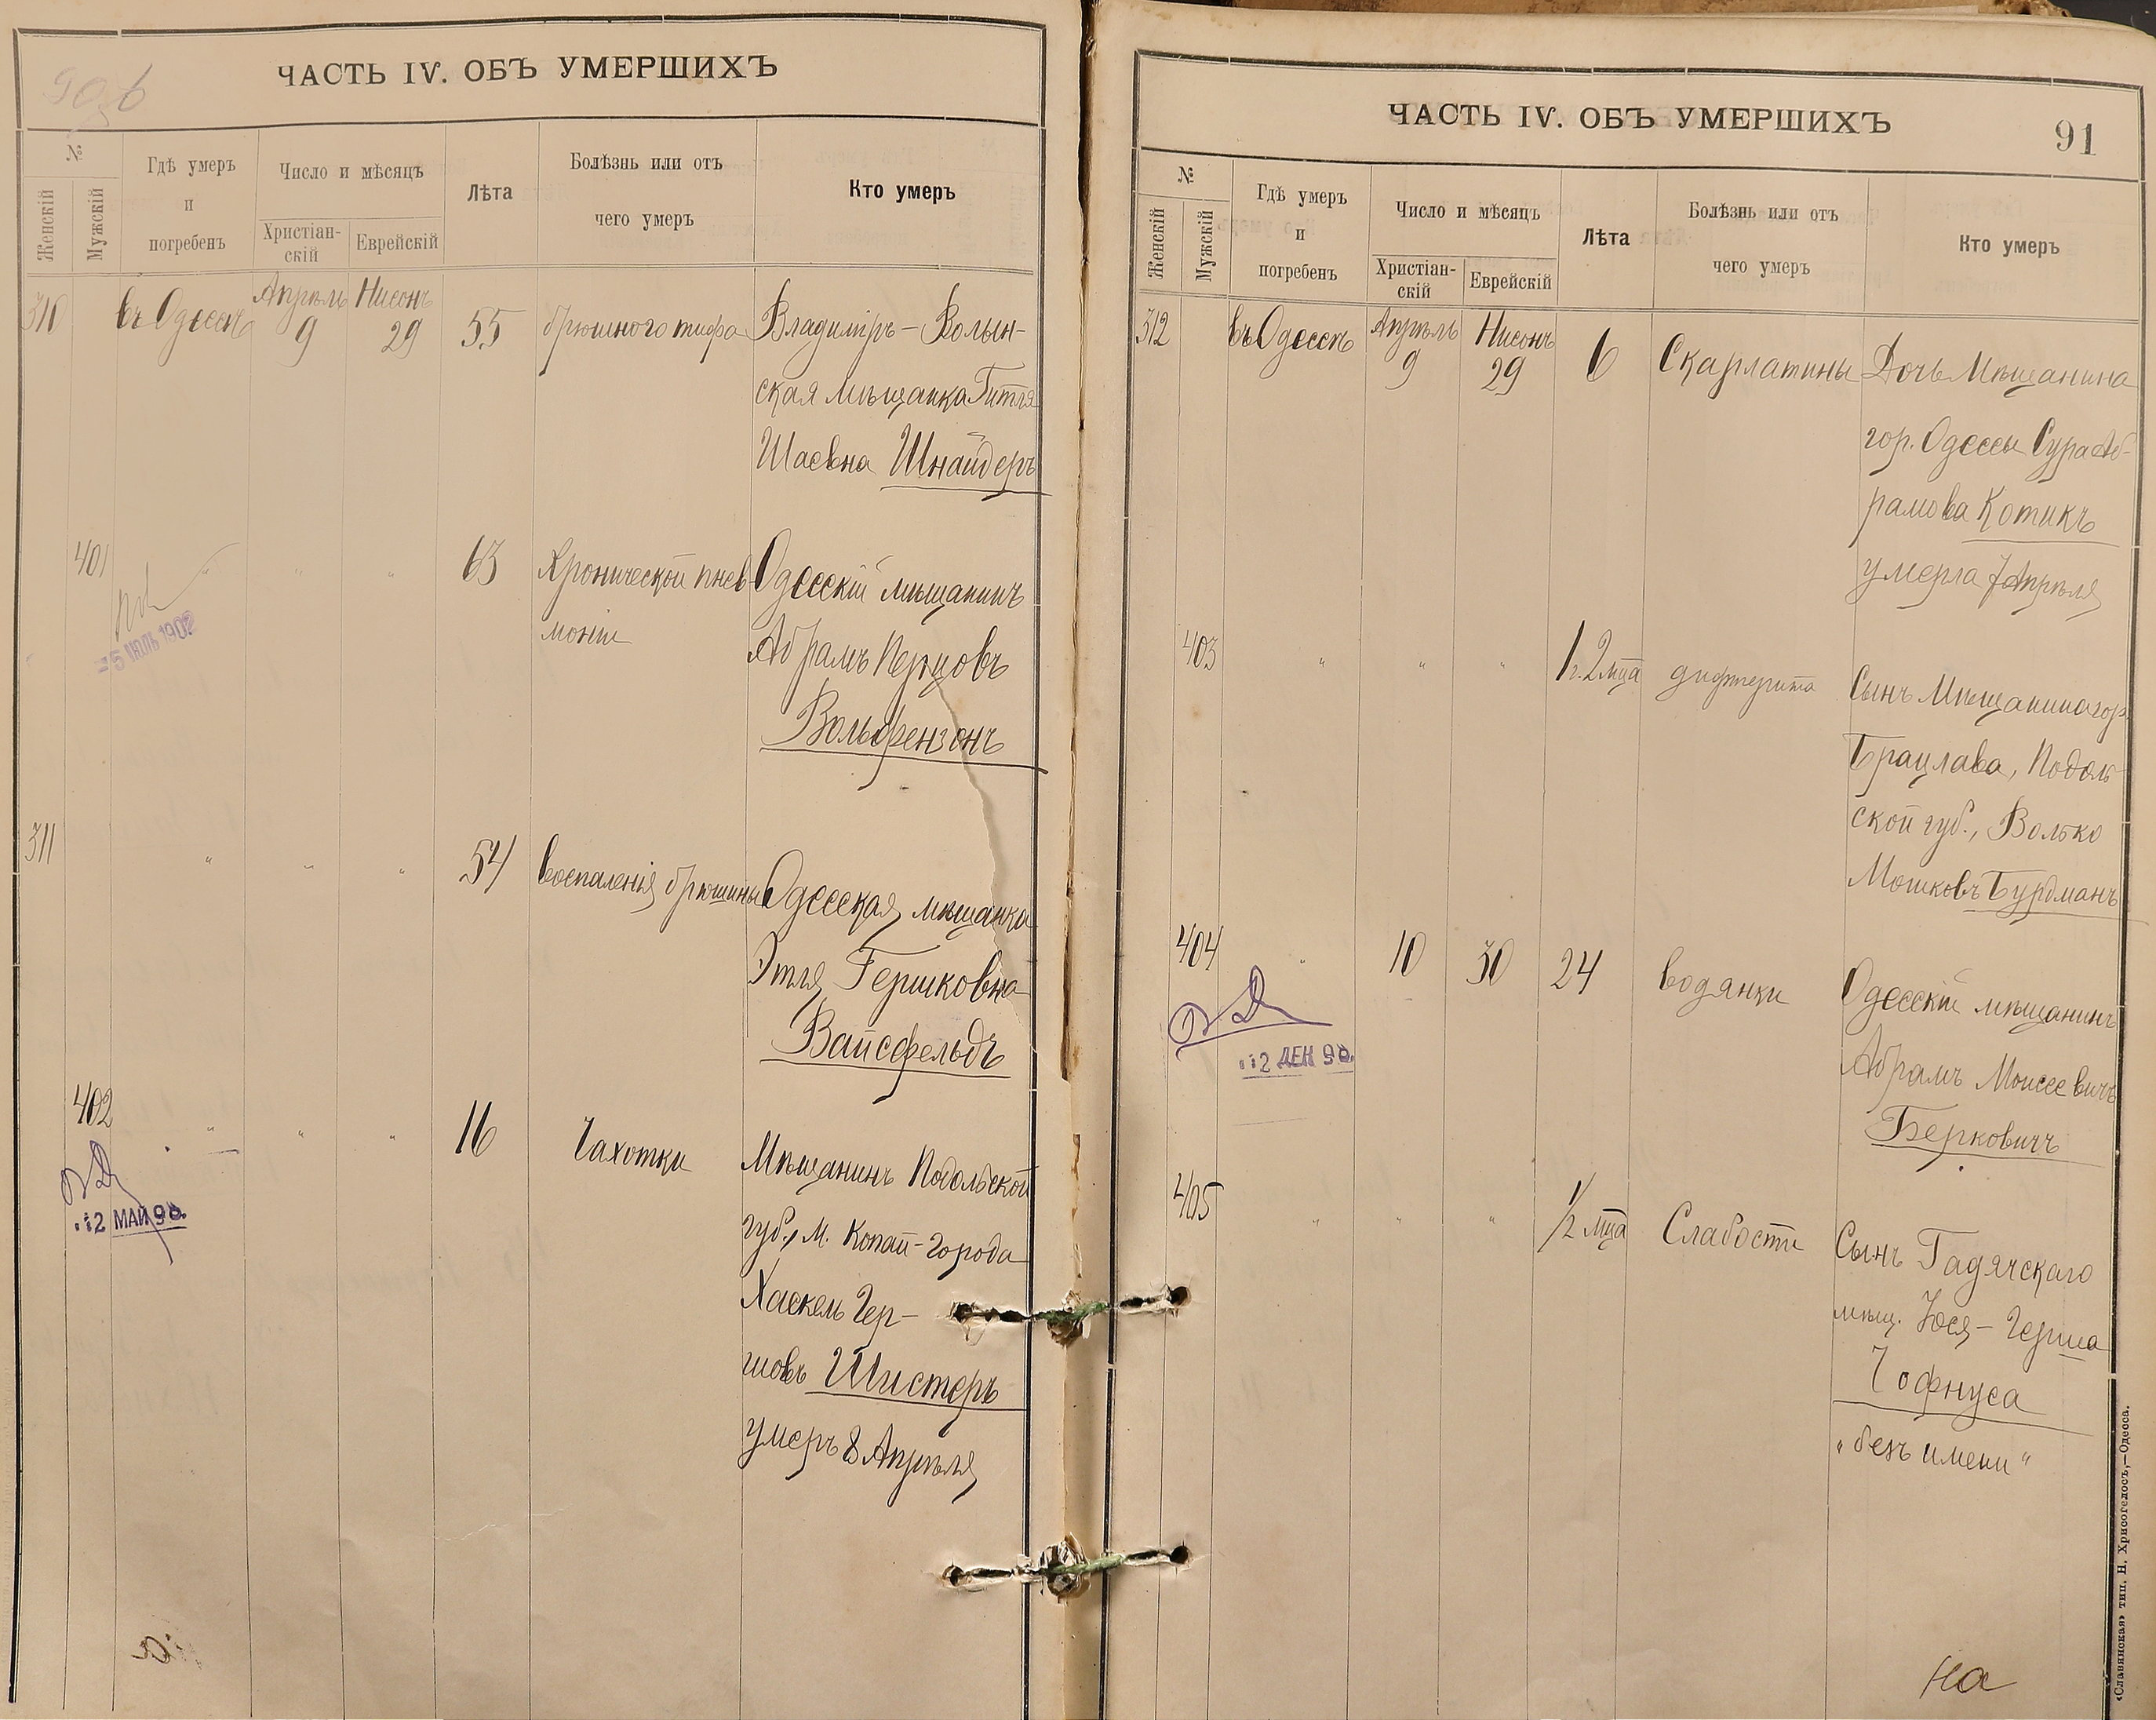 ЧАСТЬ IV. ОБЪ УМЕРШИХЪ
№
Женскій
Мужскій
Гдѣ умеръ
и
погребенъ
Число и мѣсяцъ
Христіан-
скій
Еврейскій
Лѣта
Болѣзнь или отъ
чего умеръ
Кто умеръ
310 въ Одессѣ Апрѣль 9 Нисонъ 29 55 брюшного тифа Владиміръ-Волын-
ская мѣщанка Гитля
Шаевна Шнайдеръ
401 " " " 63 Хронической пнев- Одесскій мѣщанинъ
моніи Абрамъ Перцовъ
Вольфензонъ
5 ИЮЛЬ 1902
311 " " " 54 воспаленія брюшины Одесская мѣщанка
Этля Гершковна
Вайсфельдъ
402 " " " 16 Чахотки Мѣщанинъ Подольской
губ., м. Копай-города
12 МАЙ 98.
Хаскель Гер-
шовъ Шистеръ
умеръ 8 Апрѣля
ЧАСТЬ IV. ОБЪ УМЕРШИХЪ
91
№
Женскій
Мужскій
Гдѣ умеръ
и
погребенъ
Число и мѣсяцъ
Христіан-
скій
Еврейскій
Лѣта
Болѣзнь или отъ
чего умеръ
Кто умеръ
312 въ Одессѣ Апрѣль 9 Нисонъ 29 6 Скарлатины Дочь Мѣщанина
гор. Одессы Сура Аб-
рамова Котикъ
умерла 7 Апрѣля
403 " " " 1 г. 2 мца дифтерита Сынъ Мѣщанина гор.
Брацлава, Подоль-
ской губ., Волько
Мошковъ Бурдманъ
404 " 10 30 24 водянки Одесскій мѣщанинъ
12 ДЕК 98.
Абрамъ Моисеевичъ
Берковичъ
405 " " " 1/2 мца Слабости Сынъ Гадячскаго
мѣщ. Іося-Герша
Гофнуса
"безъ имени"
на
«Славянская» тип. Н. Хрисогелосъ,—Одесса.